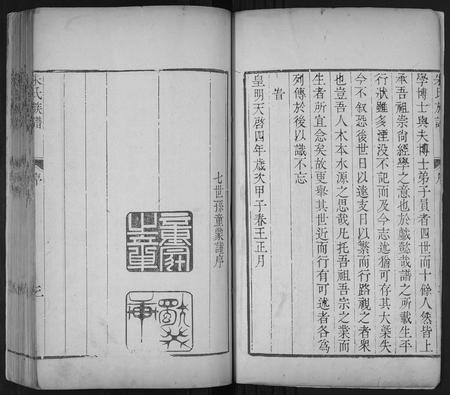 朱氏族譜
序
學博士與夫博士弟子員者四世而十餘人然皆上
承吾祖崇尚經學之意也於戲懿哉譜之所載生平
行狀雖多湮没不記而及今志遠猶可存其大槩失
今不叙恐後世日以遠支日以繁而行路視之者衆
也豈吾人木本水源之思哉凡托吾祖吾宗之業而
生者所宜念矣故更舉其世近而行有可述者各為
列傳於後以識不忘
旹
皇明天啓四年歲次甲子春王正月
七世孫童蒙謹序
朱氏族譜
序